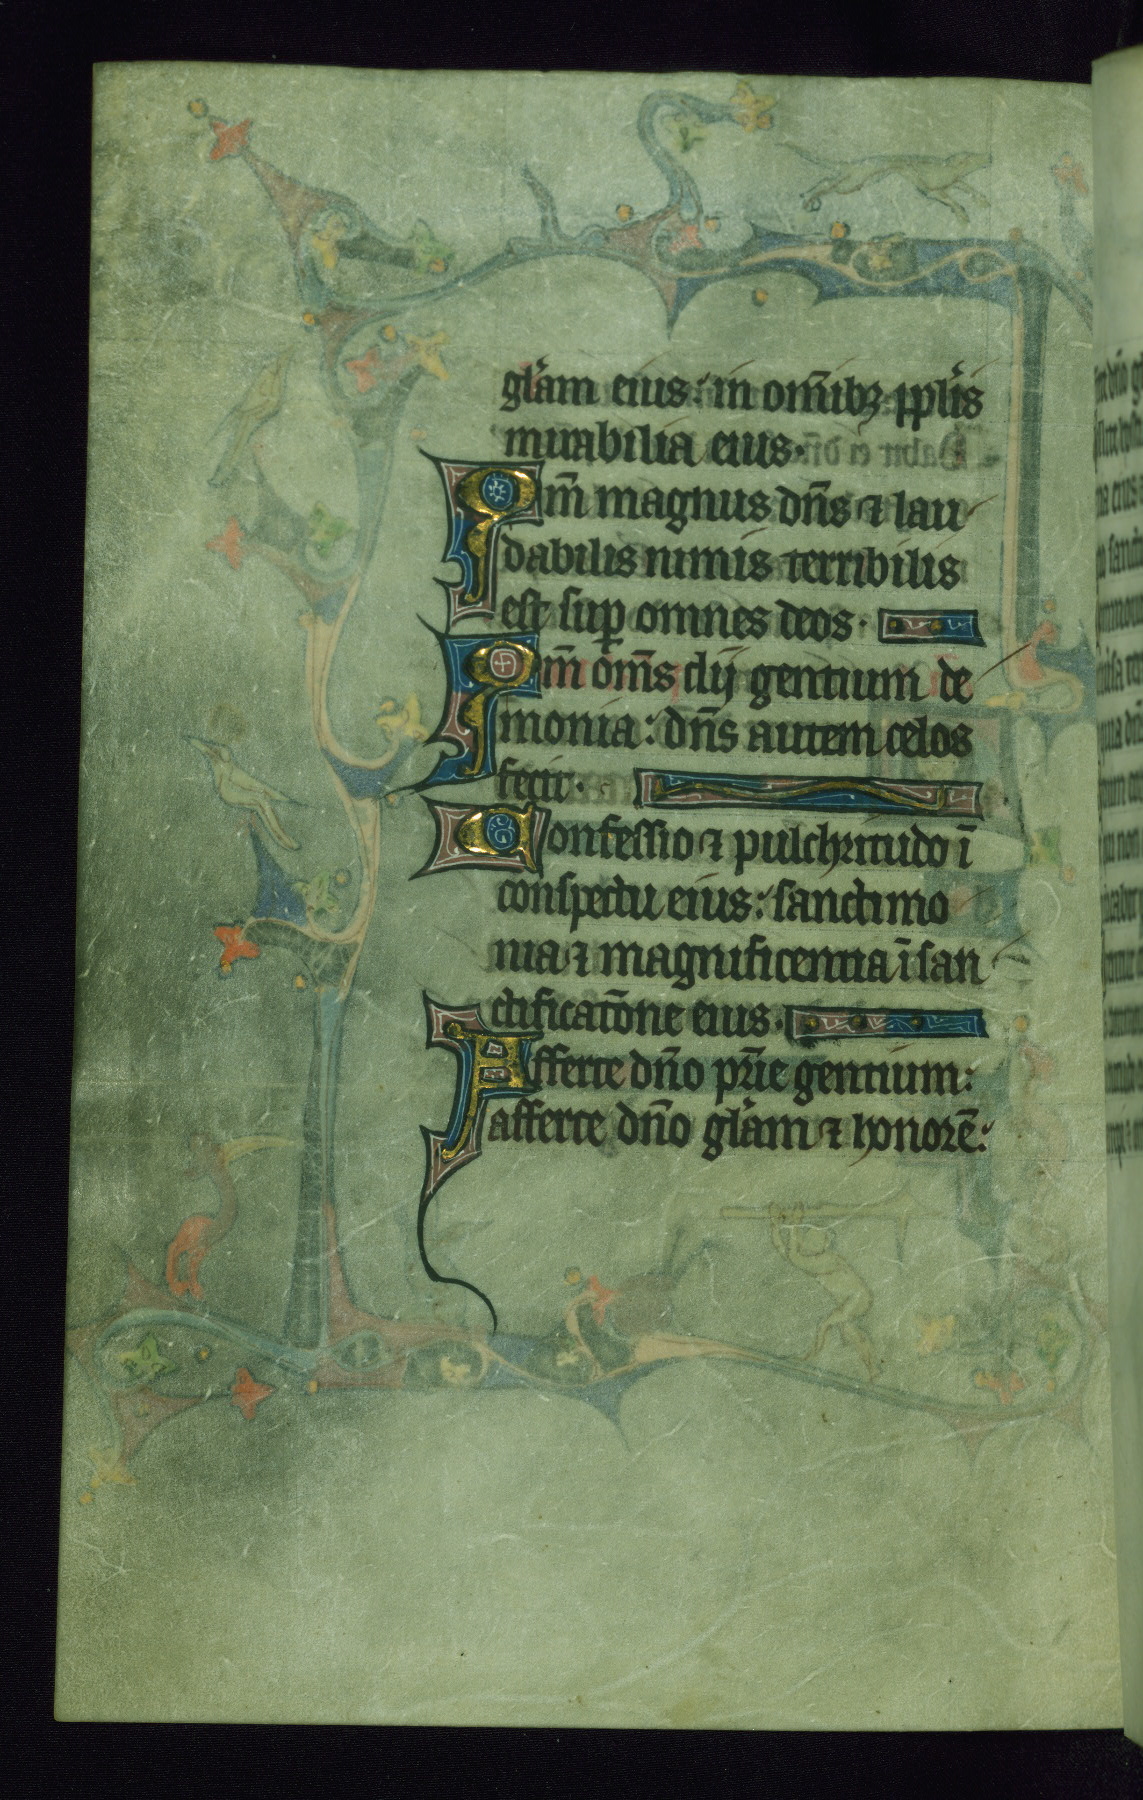 gl̃am eius: in om̃ibꝫ pp̃lis
mirabilia eius·
Qm̃ magnus dñs ⁊ lau
dabilis nimis terribilis
est suꝑ omnes deos·
Qm̃ om̃s dij gentium de
monia: dñs autem celos
fecit·
Confessio ⁊ pulchritudo ĩ
conspectu eius: sanctimo
nia ⁊ magnificentia ĩ san
ctificatõne eius·
Afferte dño pr̃ie gentium:
afferte dño gl̃am ⁊ honorẽ: